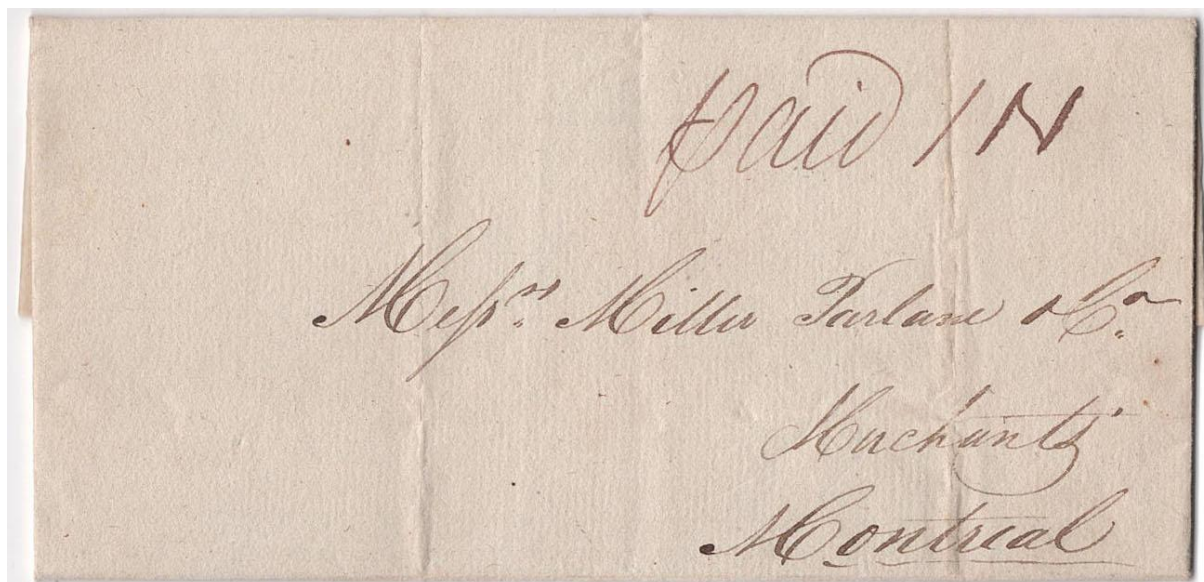 paid 1 N
Messrs. Miller Parlane & Co.
Merchants
Montreal